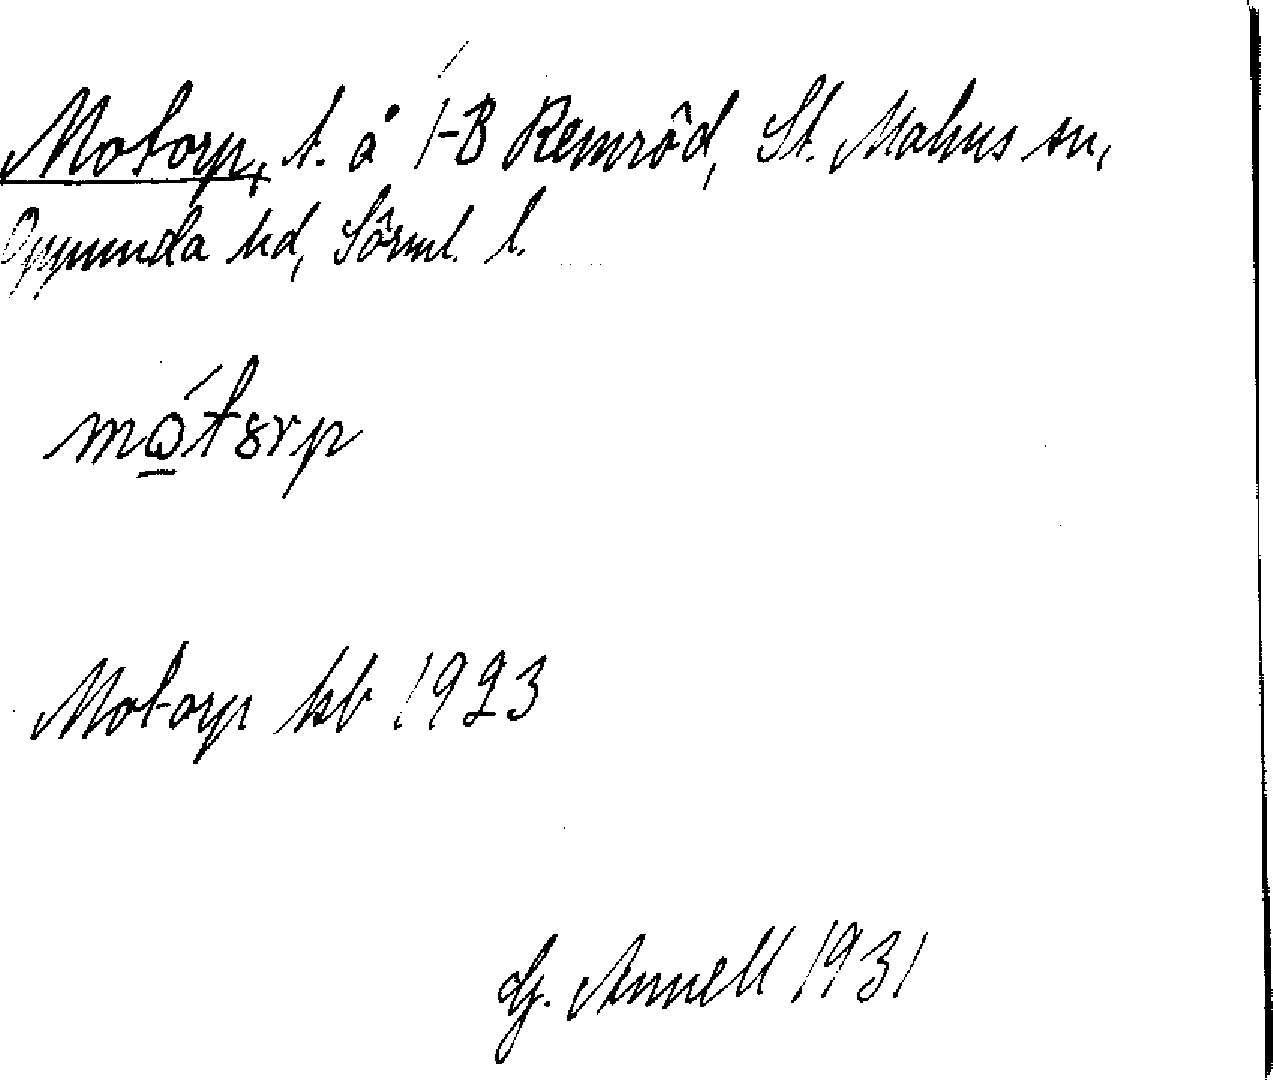 Motorp, t. å 1-3 Remröd, St. Malms sn,
Oppunda hd, Sörml. l.
mo̲´tørp
Motorp kb 1923
G. Annell 1931